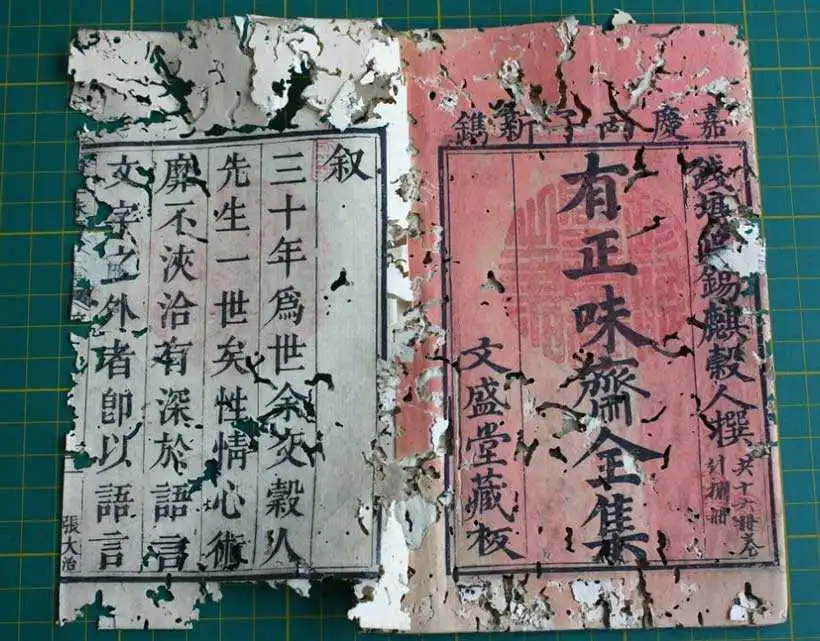 嘉慶丙子新鐫
錢塘錫麒穀人撰
共十六
計捌冊
有正味齋全集
文盛堂藏板
叙
三十年爲世余交穀人
先生一世矣性情心術
靡不浹洽有深於語言
文字之外者卽以語言
張大治